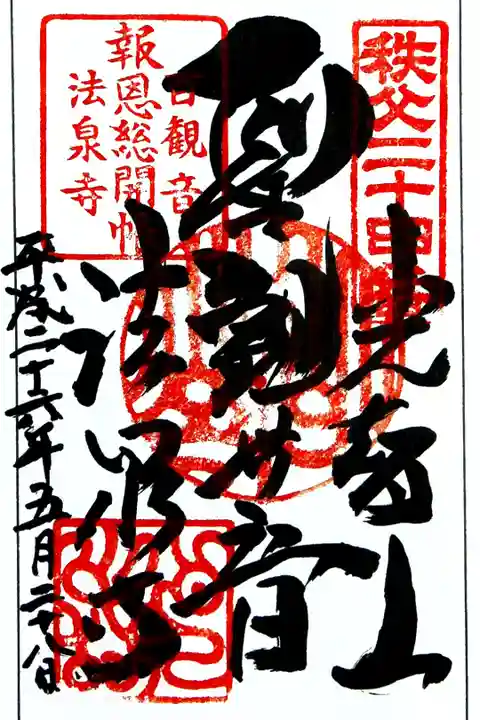 秩父二十四番
光智山
聖観世音
法泉寺
百観音
報恩総開帳
法泉寺
平成二十六年五月二十八日